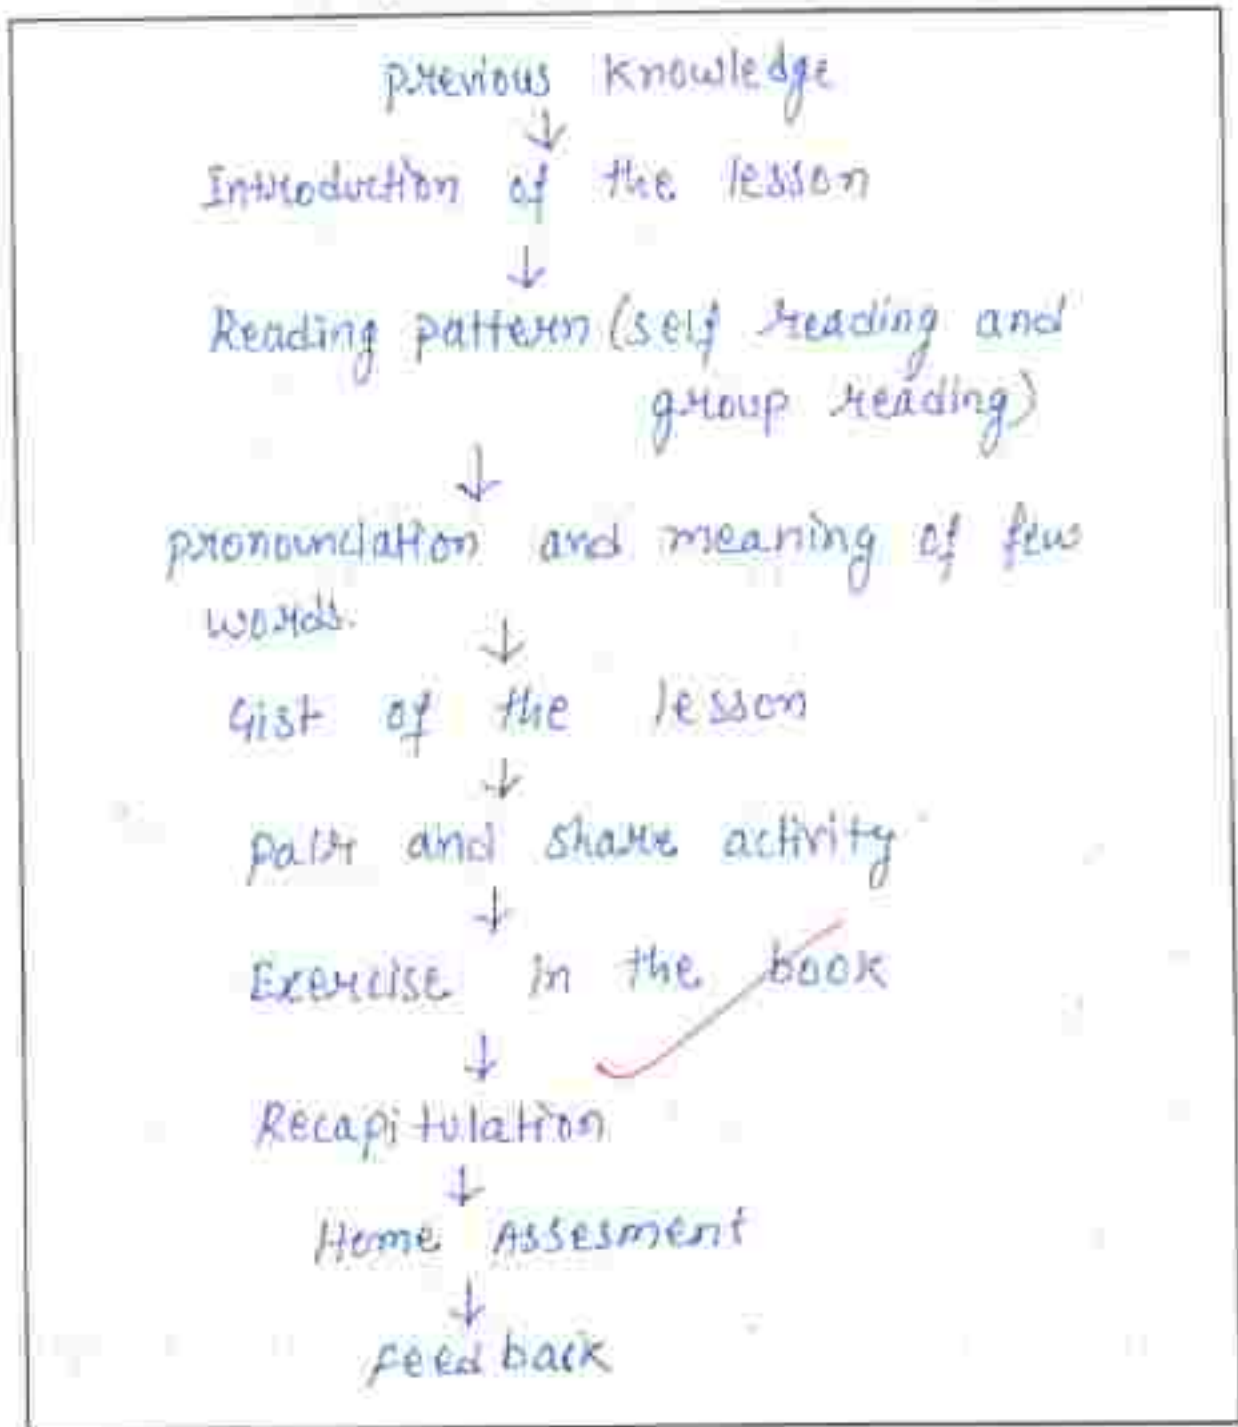 previous Knowledge
↓
Introduction of the lesson
↓
Reading pattern (self reading and
group reading)
↓
pronounciation and meaning of few
words.
↓
Gist of the lesson
↓
pair and share activity
↓
Exercise in the book
↓
Recapitulation
↓
Home Assesment
↓
feed back